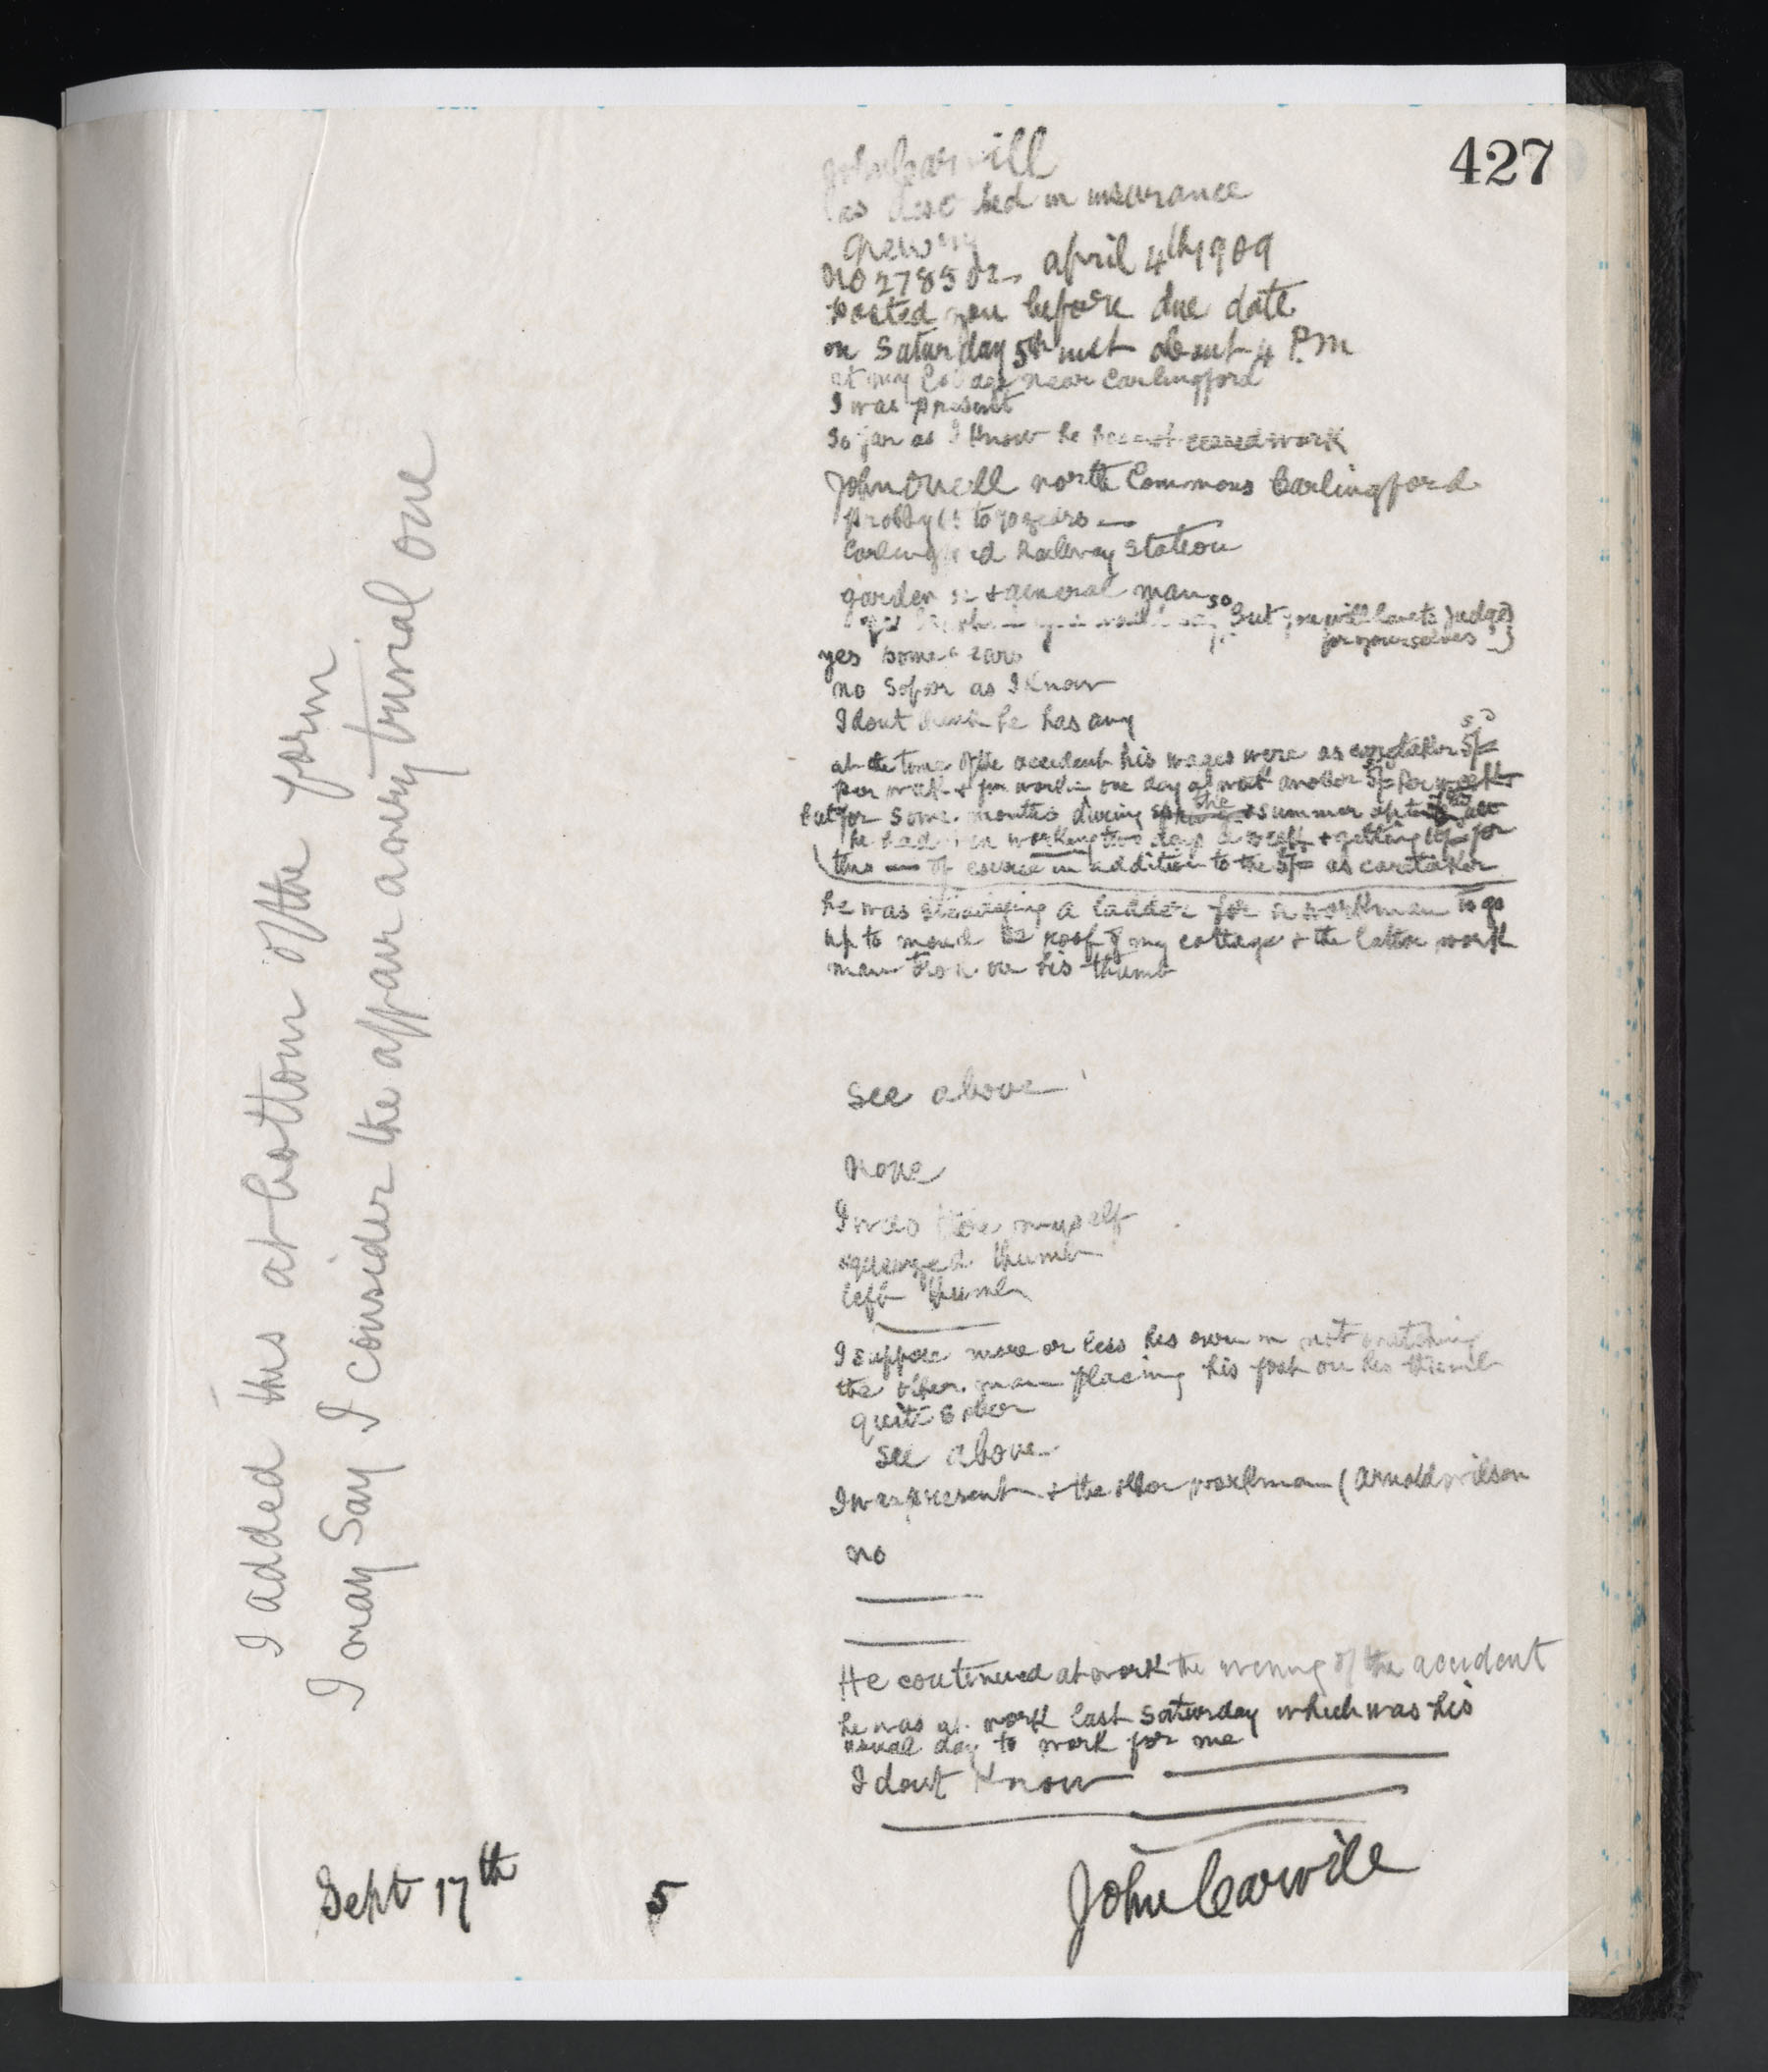 427
John Carvill
as described in insurance
Newry
No 278502, april 4th 1909
Posted you before due date
on Saturday 5th inst about 4 P.m
at my Cottage near Carlingford
I was present
So far as I know he has not ceased work
John ONeill north Commons Carlingford
probly 65 to 70 years —
Carlingford Railway Station
gardener + general man
you so But you will have to judge
for yourselves
yes some years
no So far as I Know
I dont think he has any
at the time of the accident his wages were as caretaker 5/=
per week + for working one day a week another 5/= per week
but for some months during the summer up to
he had been working two days a week + getting 10/= for
this — of course in addition to the 5/= as caretaker
he was steadying a ladder for a workman to go
up to mend the roof of my cottage + the latter work
man trod on his thumb
See above
None
I was there myself
squeezed thumb
left thumb
I suppose more or less his own in not watching
the other man placing his foot on his thumb
quite sober
see above
I was present + the other workman (Arnold Wilson
no
He continued at work the evening of the accident
he was at work last Saturday which was his
usual day to work for me
I dont Know
John Carvill
Sept 17th 5
I added this at bottom of the form
I may Say I consider the affair a very trivial one